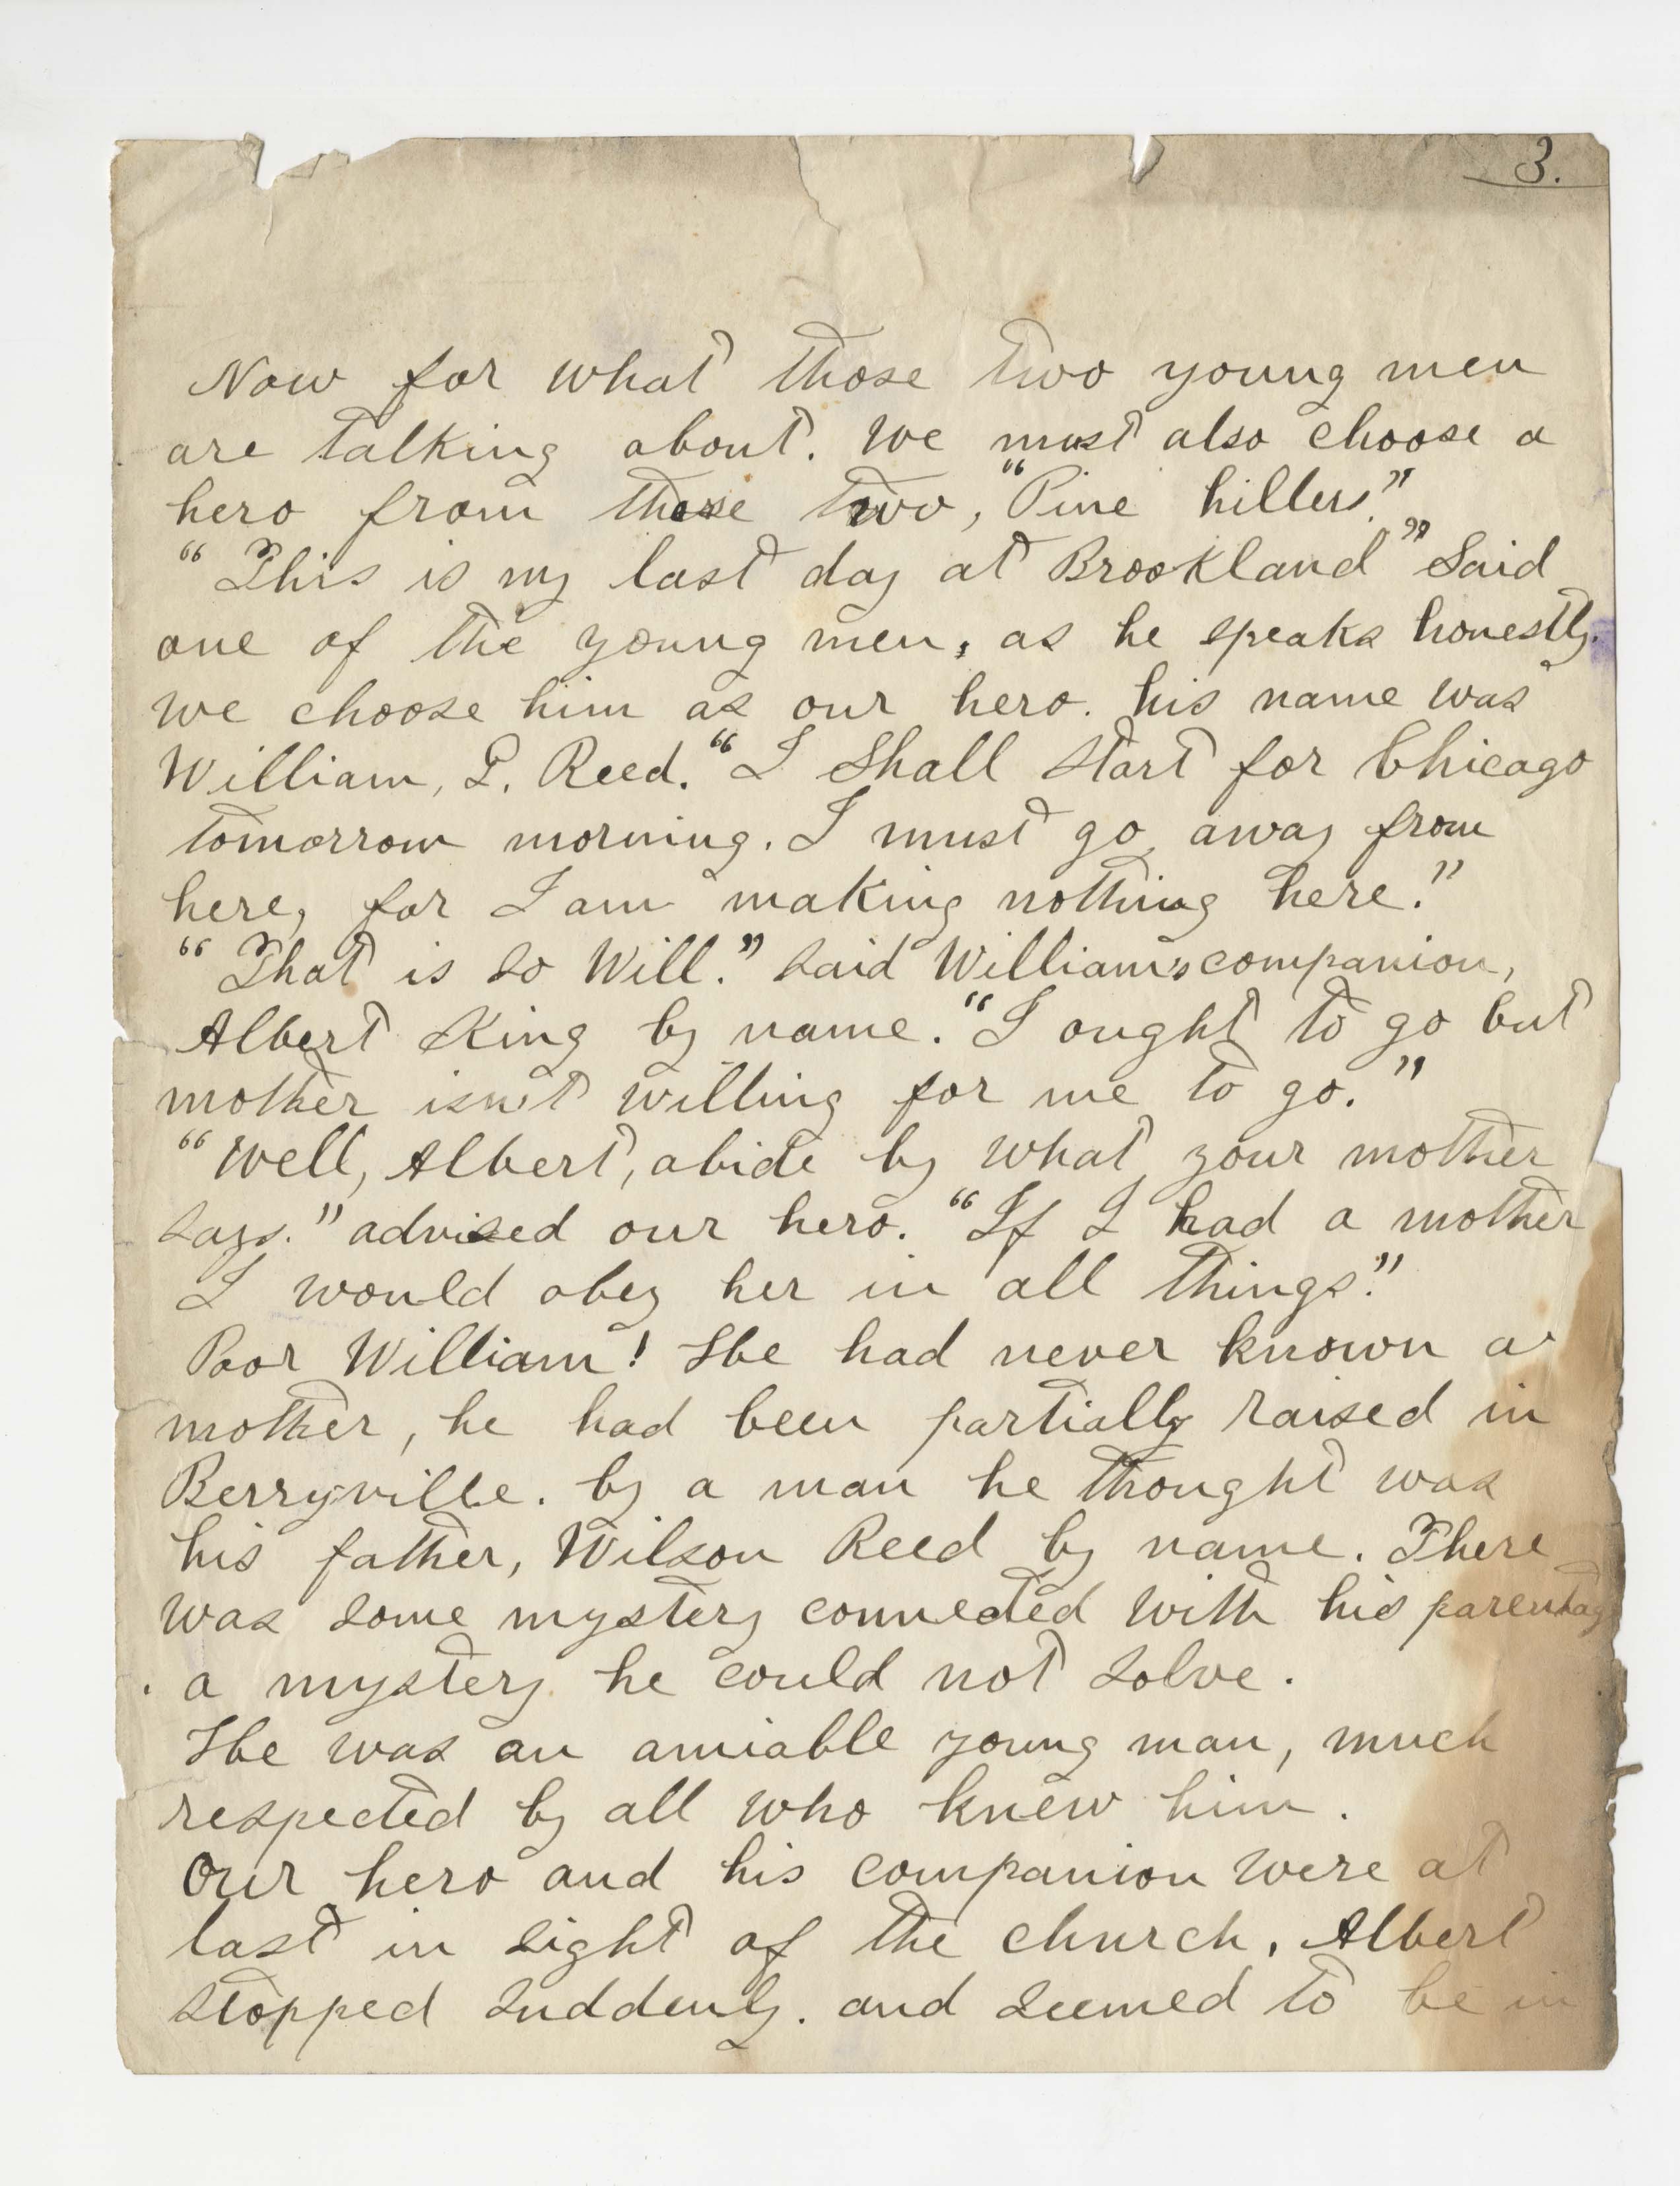 3.
Now for what those two young men
are talking about. We must also choose a
hero from these two, "Pine hillers."
"This is my last day at Brookland" Said
one of the young men, as he speaks honestly
we choose him as our hero. his name was
William, P. Reed. "I Shall start for Chicago
tomorrow morning. I must go away from
here, for I am making nothing here."
"That is so Will." said William's companion,
Albert King by name. "I ought to go but
mother isn't willing for me to go."
"Well, Albert, abide by what your mother
says." advised our hero. "If I had a mother
I would obey her in all things."
Poor William! He had never known a
mother, he had been partially raised in
Berryville. by a man he thought was
his father, Wilson Reed by name. There
was some mystery connected with his parentag
a mystery he could not solve.
He was an amiable young man, much
respected by all who knew him.
Our hero and his companion were at
last in sight of the church, Albert
stopped suddenly. and seemed to be in